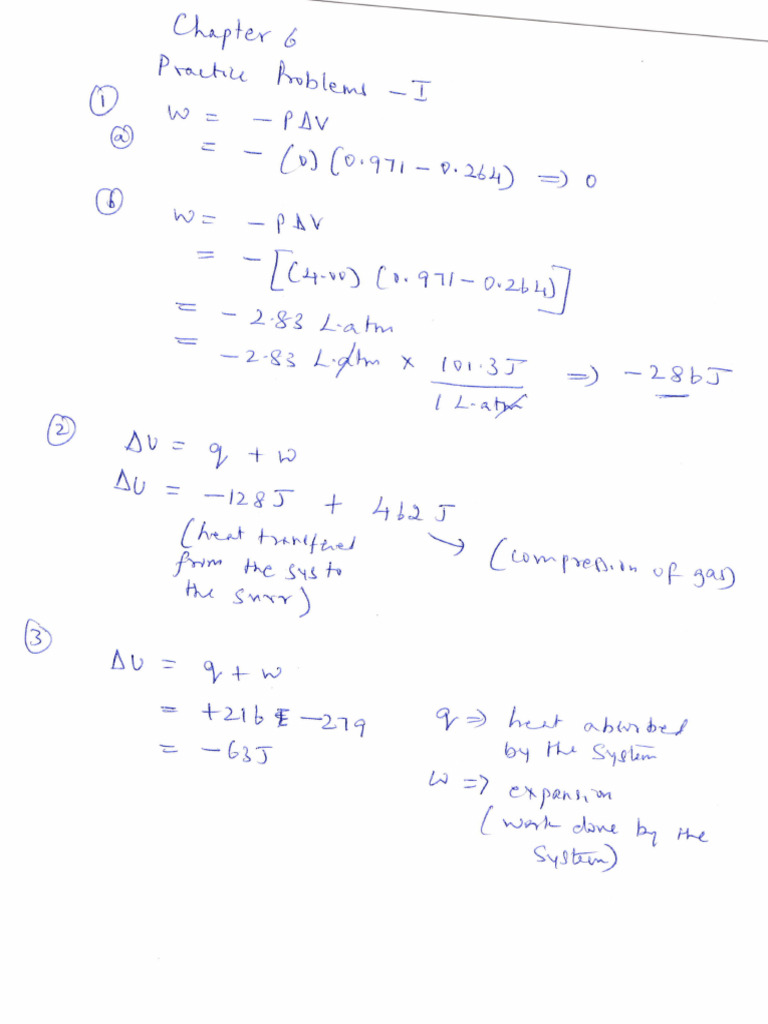 Chapter 6
Practice Problems - I
① W = - PΔV
ⓐ = - (0) (0.971 - 0.264) => 0
ⓑ W = - PΔV
= - [(4.00) (0.971 - 0.264)]
= - 2.83 L.atm
= - 2.83 L.atm × 101.3J / 1 L.atm => - 286J
② ΔU = q + w
ΔU = -128J + 462 J
(heat transfered from the sys to the surr)
→ (compression of gas)
③ ΔU = q + w
= +216 - 279
= - 63J
q => heat absorbed
by the system
w => expansion
(work done by the
system)